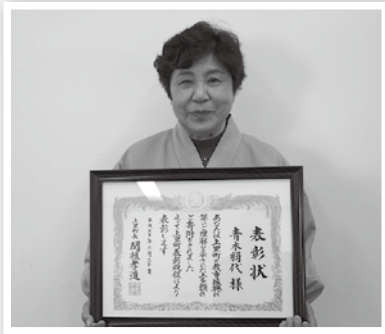 表彰状
青木絹代 様
あなたは上里町の教育振興に
深いご理解を示され多額の
ご寄附をされました
よって上里町表彰規程により
表彰します
上里町長 関根孝道